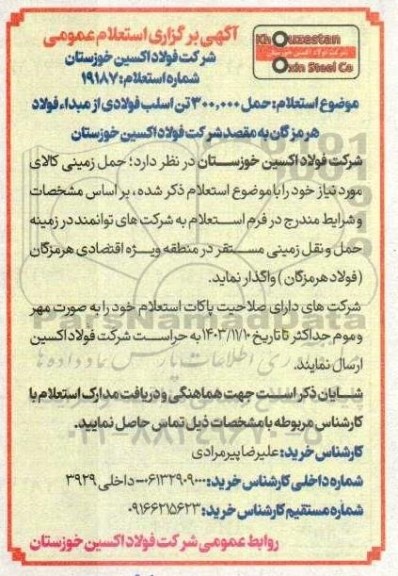 آگهی برگزاری استعلام عمومی
Khouzestan
شرکت فولاد اکسین خوزستان
Oxin Steel Co
شرکت فولاد اکسین خوزستان
شماره استعلام: ۱۹۱۸۷
موضوع استعلام: حمل ۳۰۰,۰۰۰ تن اسلب فولادی از مبداء فولاد
هرمزگان به مقصد شرکت فولاد اکسین خوزستان
شرکت فولاد اکسین خوزستان در نظر دارد؛ حمل زمینی کالای
مورد نیاز خود را با موضوع استعلام ذکر شده، بر اساس مشخصات
و شرایط مندرج در فرم استعلام به شرکت های توانمند در زمینه
حمل و نقل زمینی مستقر در منطقه ویژه اقتصادی هرمزگان
(فولاد هرمزگان) واگذار نماید.
شرکت های دارای صلاحیت پاکات استعلام خود را به صورت مهر
و موم حداکثر تا تاریخ ۱۴۰۳/۱۱/۱۰ به حراست شرکت فولاد اکسین
ارسال نمایند.
شایان ذکر است جهت هماهنگی و دریافت مدارک استعلام با
کارشناس مربوطه با مشخصات ذیل تماس حاصل نمایید.
کارشناس خرید: علیرضا پیرمرادی
شماره داخلی کارشناس خرید: ۰۶۱۳۲۹۰۹۰۰۰- داخلی ۳۹۲۹
شماره مستقیم کارشناس خرید: ۰۹۱۶۶۲۱۵۶۲۳
روابط عمومی شرکت فولاد اکسین خوزستان